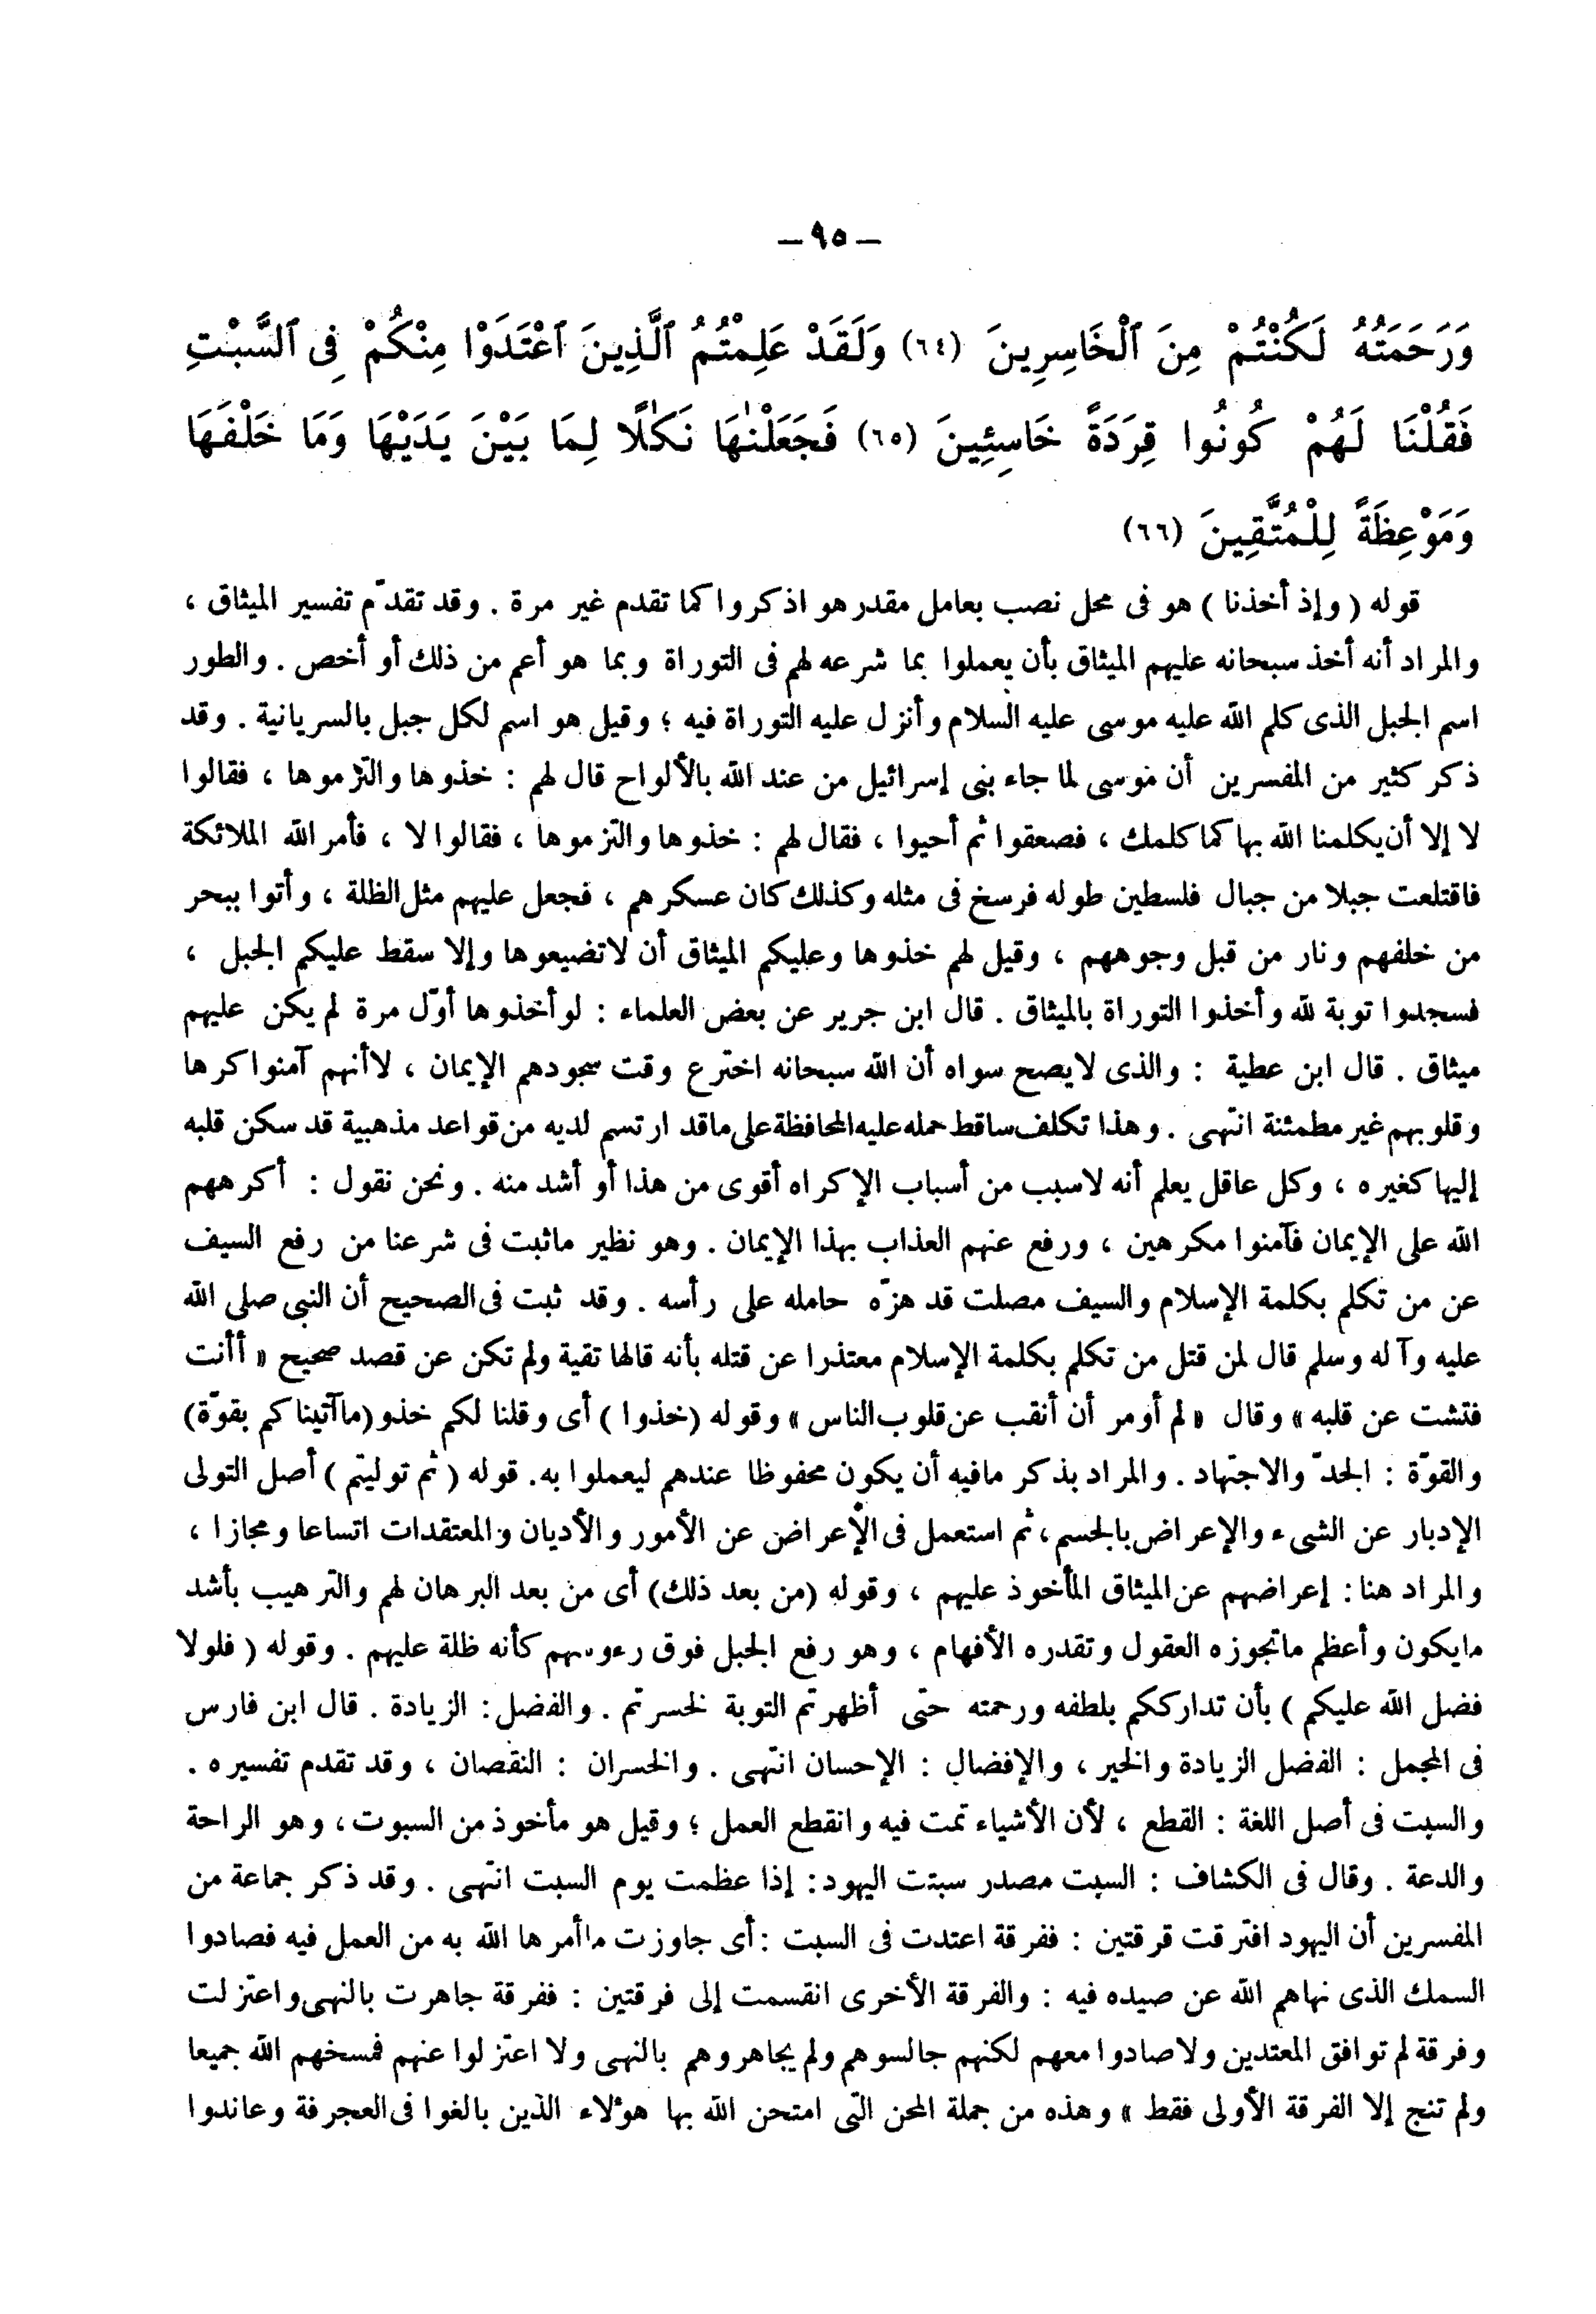 — ٩٥ —
وَرَحْمَتُهُ لَكُنْتُمْ مِنَ ٱلْخَاسِرِينَ (٦٤) وَلَقَدْ عَلِمْتُمُ ٱلَّذِينَ ٱعْتَدَوْا مِنْكُمْ فِى ٱلسَّبْتِ
فَقُلْنَا لَهُمْ كُونُوا قِرَدَةً خَاسِئِينَ (٦٥) فَجَعَلْنٰهَا نَكَٰلًا لِمَا بَيْنَ يَدَيْهَا وَمَا خَلْفَهَا
وَمَوْعِظَةً لِلْمُتَّقِينَ (٦٦)
قوله ( وإذ أخذنا ) هو فى محل نصب بعامل مقدر هو اذكروا كما تقدم غير مرة . وقد تقدّم تفسير الميثاق ،
والمراد أنه أخذ سبحانه عليهم الميثاق بأن يعملوا بما شرعه لهم فى التوراة وبما هو أعم من ذلك أو أخص . والطور
اسم الجبل الذى كلم الله عليه موسى عليه السلام وأنزل عليه التوراة فيه ؛ وقيل هو اسم لكل جبل بالسريانية . وقد
ذكر كثير من المفسرين أن موسى لما جاء بنى إسرائيل من عند الله بالألواح قال لهم : خذوها والتزموها ، فقالوا
لا إلا أن يكلمنا الله بها كما كلمك ، فصعقوا ثم أحيوا ، فقال لهم : خذوها والتزموها ، فقالوا لا ، فأمر الله الملائكة
فاقتلعت جبلا من جبال فلسطين طوله فرسخ فى مثله وكذلك كان عسكرهم ، فجعل عليهم مثل الظلة ، وأتوا ببحر
من خلفهم ونار من قبل وجوههم ، وقيل لهم خذوها وعليكم الميثاق أن لا تضيعوها وإلا سقط عليكم الجبل ،
فسجدوا توبة لله وأخذوا التوراة بالميثاق . قال ابن جرير عن بعض العلماء : لو أخذوها أوّل مرة لم يكن عليهم
ميثاق . قال ابن عطية : والذى لا يصح سواه أن الله سبحانه اخترع وقت سجودهم الإيمان ، لا أنهم آمنوا كرها
وقلوبهم غير مطمئنة انتهى . وهذا تكلف ساقط حمله عليه المحافظة على ما قد ارتسم لديه من قواعد مذهبية قد سكن قلبه
إليها كغيره ، وكل عاقل يعلم أنه لا سبب من أسباب الإكراه أقوى من هذا أو أشد منه . ونحن نقول : أكرههم
الله على الإيمان فآمنوا مكرهين ، ورفع عنهم العذاب بهذا الإيمان . وهو نظير ما ثبت فى شرعنا من رفع السيف
عن من تكلم بكلمة الإسلام والسيف مصلت قد هزّه حامله على رأسه . وقد ثبت فى الصحيح أن النبى صلى الله
عليه وآله وسلم قال لمن قتل من تكلم بكلمة الإسلام معتذرا عن قتله بأنه قالها تقية ولم تكن عن قصد صحيح « أأنت
فتشت عن قلبه » وقال « لم أومر أن أنقب عن قلوب الناس » وقوله (خذوا ) أى وقلنا لكم خذو (ما آتيناكم بقوّة)
والقوّة : الجدّ والاجتهاد . والمراد بذكر ما فيه أن يكون محفوظا عندهم ليعملوا به. قوله ( ثم توليتم ) أصل التولى
الإدبار عن الشىء والإعراض بالجسم، ثم استعمل فى الإعراض عن الأمور والأديان والمعتقدات اتساعا ومجازا ،
والمراد هنا : إعراضهم عن الميثاق المأخوذ عليهم ، وقوله (من بعد ذلك) أى من بعد البرهان لهم والترهيب بأشد
ما يكون وأعظم ما تجوزه العقول وتقدره الأفهام ، وهو رفع الجبل فوق رءوسهم كأنه ظلة عليهم . وقوله ( فلولا
فضل الله عليكم ) بأن تدارككم بلطفه ورحمته حتى أظهرتم التوبة لخسرتم . والفضل : الزيادة . قال ابن فارس
فى المجمل : الفضل الزيادة والخير ، والإفضال : الإحسان انتهى . والخسران : النقصان ، وقد تقدم تفسيره .
والسبت فى أصل اللغة : القطع ، لأن الأشياء تمت فيه وانقطع العمل ؛ وقيل هو مأخوذ من السبوت ، وهو الراحة
والدعة . وقال فى الكشاف : السبت مصدر سبتت اليهود : إذا عظمت يوم السبت انتهى . وقد ذكر جماعة من
المفسرين أن اليهود افترقت قرقتين : ففرقة اعتدت فى السبت : أى جاوزت ما أمرها الله به من العمل فيه فصادوا
السمك الذى نهاهم الله عن صيده فيه : والفرقة الأخرى انقسمت إلى فرقتين : ففرقة جاهرت بالنهى واعتزلت
وفرقة لم توافق المعتدين ولا صادوا معهم لكنهم جالسوهم ولم يجاهروهم بالنهى ولا اعتزلوا عنهم فمسخهم الله جميعا
ولم تنج إلا الفرقة الأولى فقط » وهذه من جملة المحن التى امتحن الله بها هؤلاء الذين بالغوا فى العجرفة وعاندوا